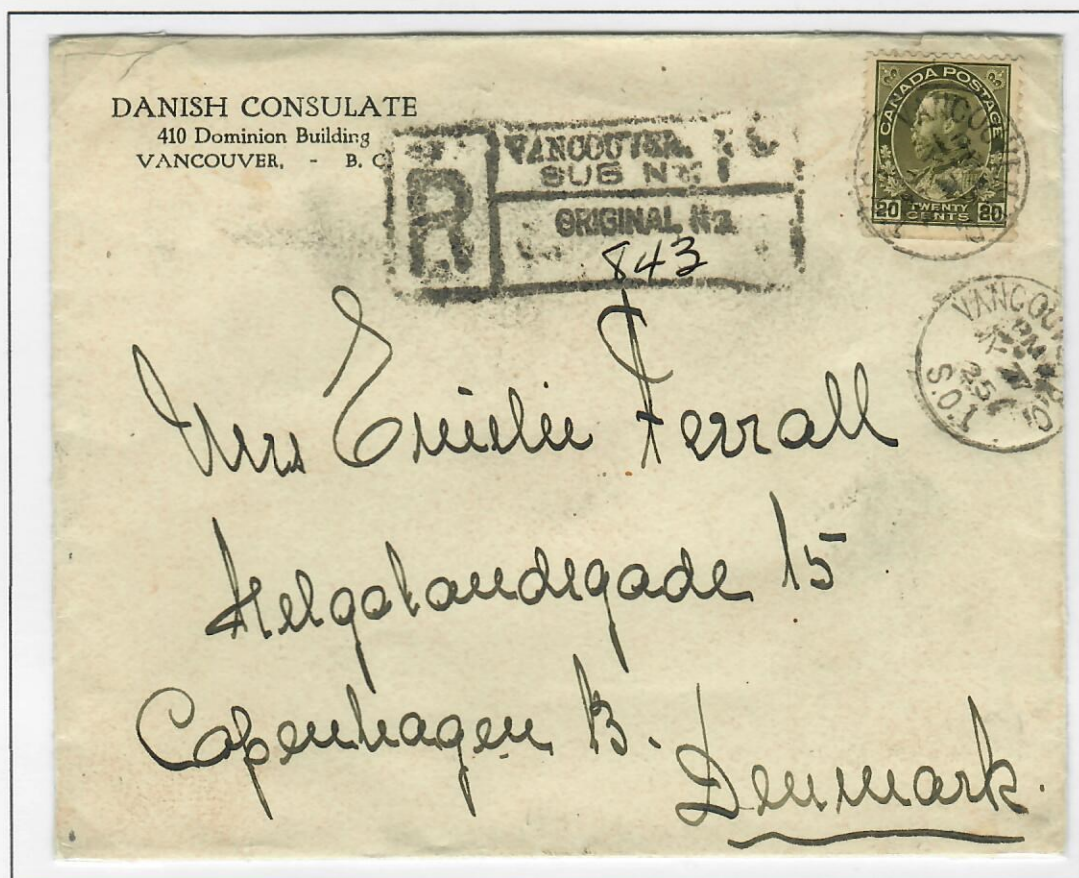 DANISH CONSULATE
410 Dominion Building
VANCOUVER, - B. C.
R
VANCOUVER,
SUB No. 1
ORIGINAL No.
843
CANADA POSTAGE
20 TWENTY CENTS 20
VANCOUV
PM
25
S.O.1
Mrs Emilie Ferrall
Helgolandsgade 15
Copenhagen B.
Denmark.